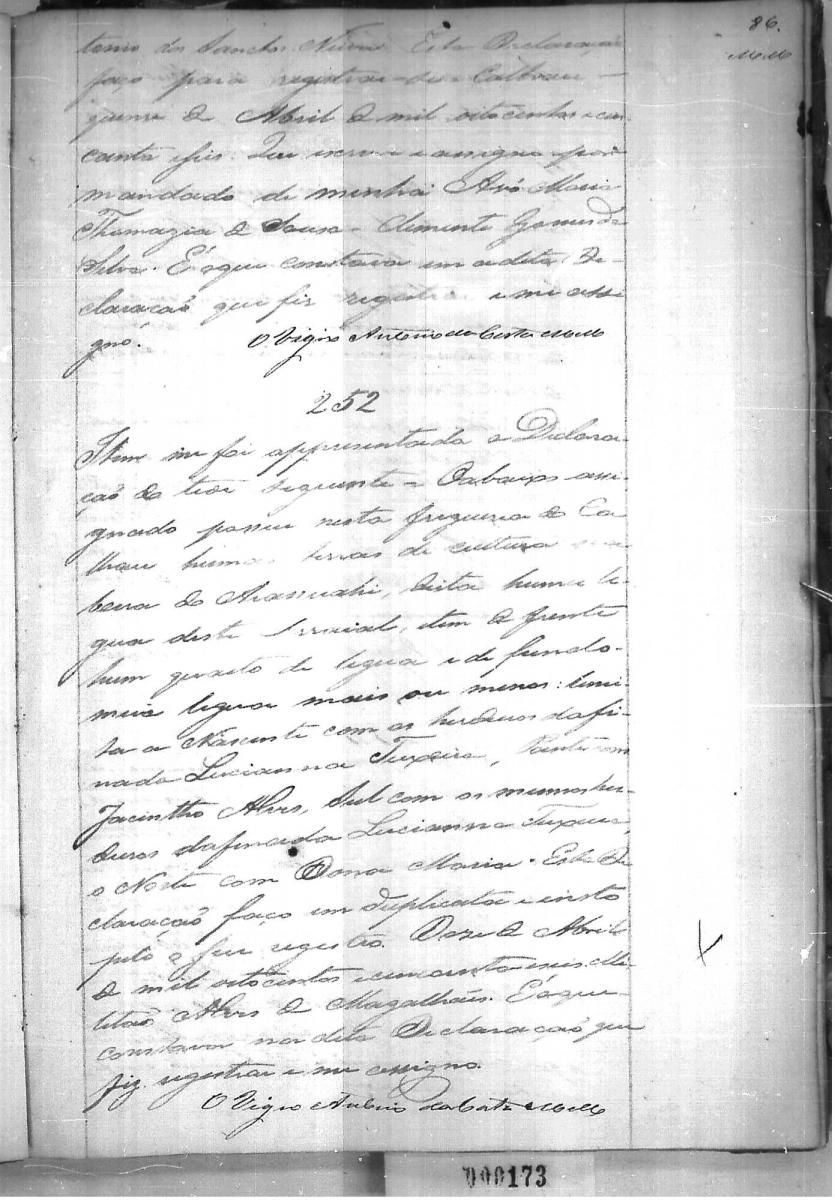 86.
Mello
dos Santos Neives. Esta Declaração
faço para registrar-se. Calhau
quinze de Abril de mil oitocentos e cin-
coenta e seis. Que escrevi e assigno por
mandado de minha Avó Maria
Thomazia de Sousa - Clemente Gomes da
Silva. E o que constava em a dita De-
claração que fiz registrar e me assi-
gno. O Vigro Antonio da Costa Mello
252
Item me foi appresentada a Declara-
ção do teor seguinte - O abaixo assi-
gnado possue nesta freguesia do Ca
lhau humas terras de cultura na
beira do Arassuahi, dista huma le
gua deste Arraial, tem de frente
hum quarto de legua e de fundo
meia legua mais ou menos: limi-
ta a Nascente com os herdeiros da fi-
nada Lucianna Teixeira, Poente com
Jacintho Alves, Sul com os mesmos her-
deiros da finada Lucianna Teixeira,
o Norte com Dona Maria. Esta De
claração faço em duplicata e
de Abril
de mil oitocentos e cincoenta e seis. Mi-
litão Alves de Magalhães. E o que
constava na dita Declaração que
fiz registrar e me assigno.
O Vigro Antonio da Costa Mello
000173